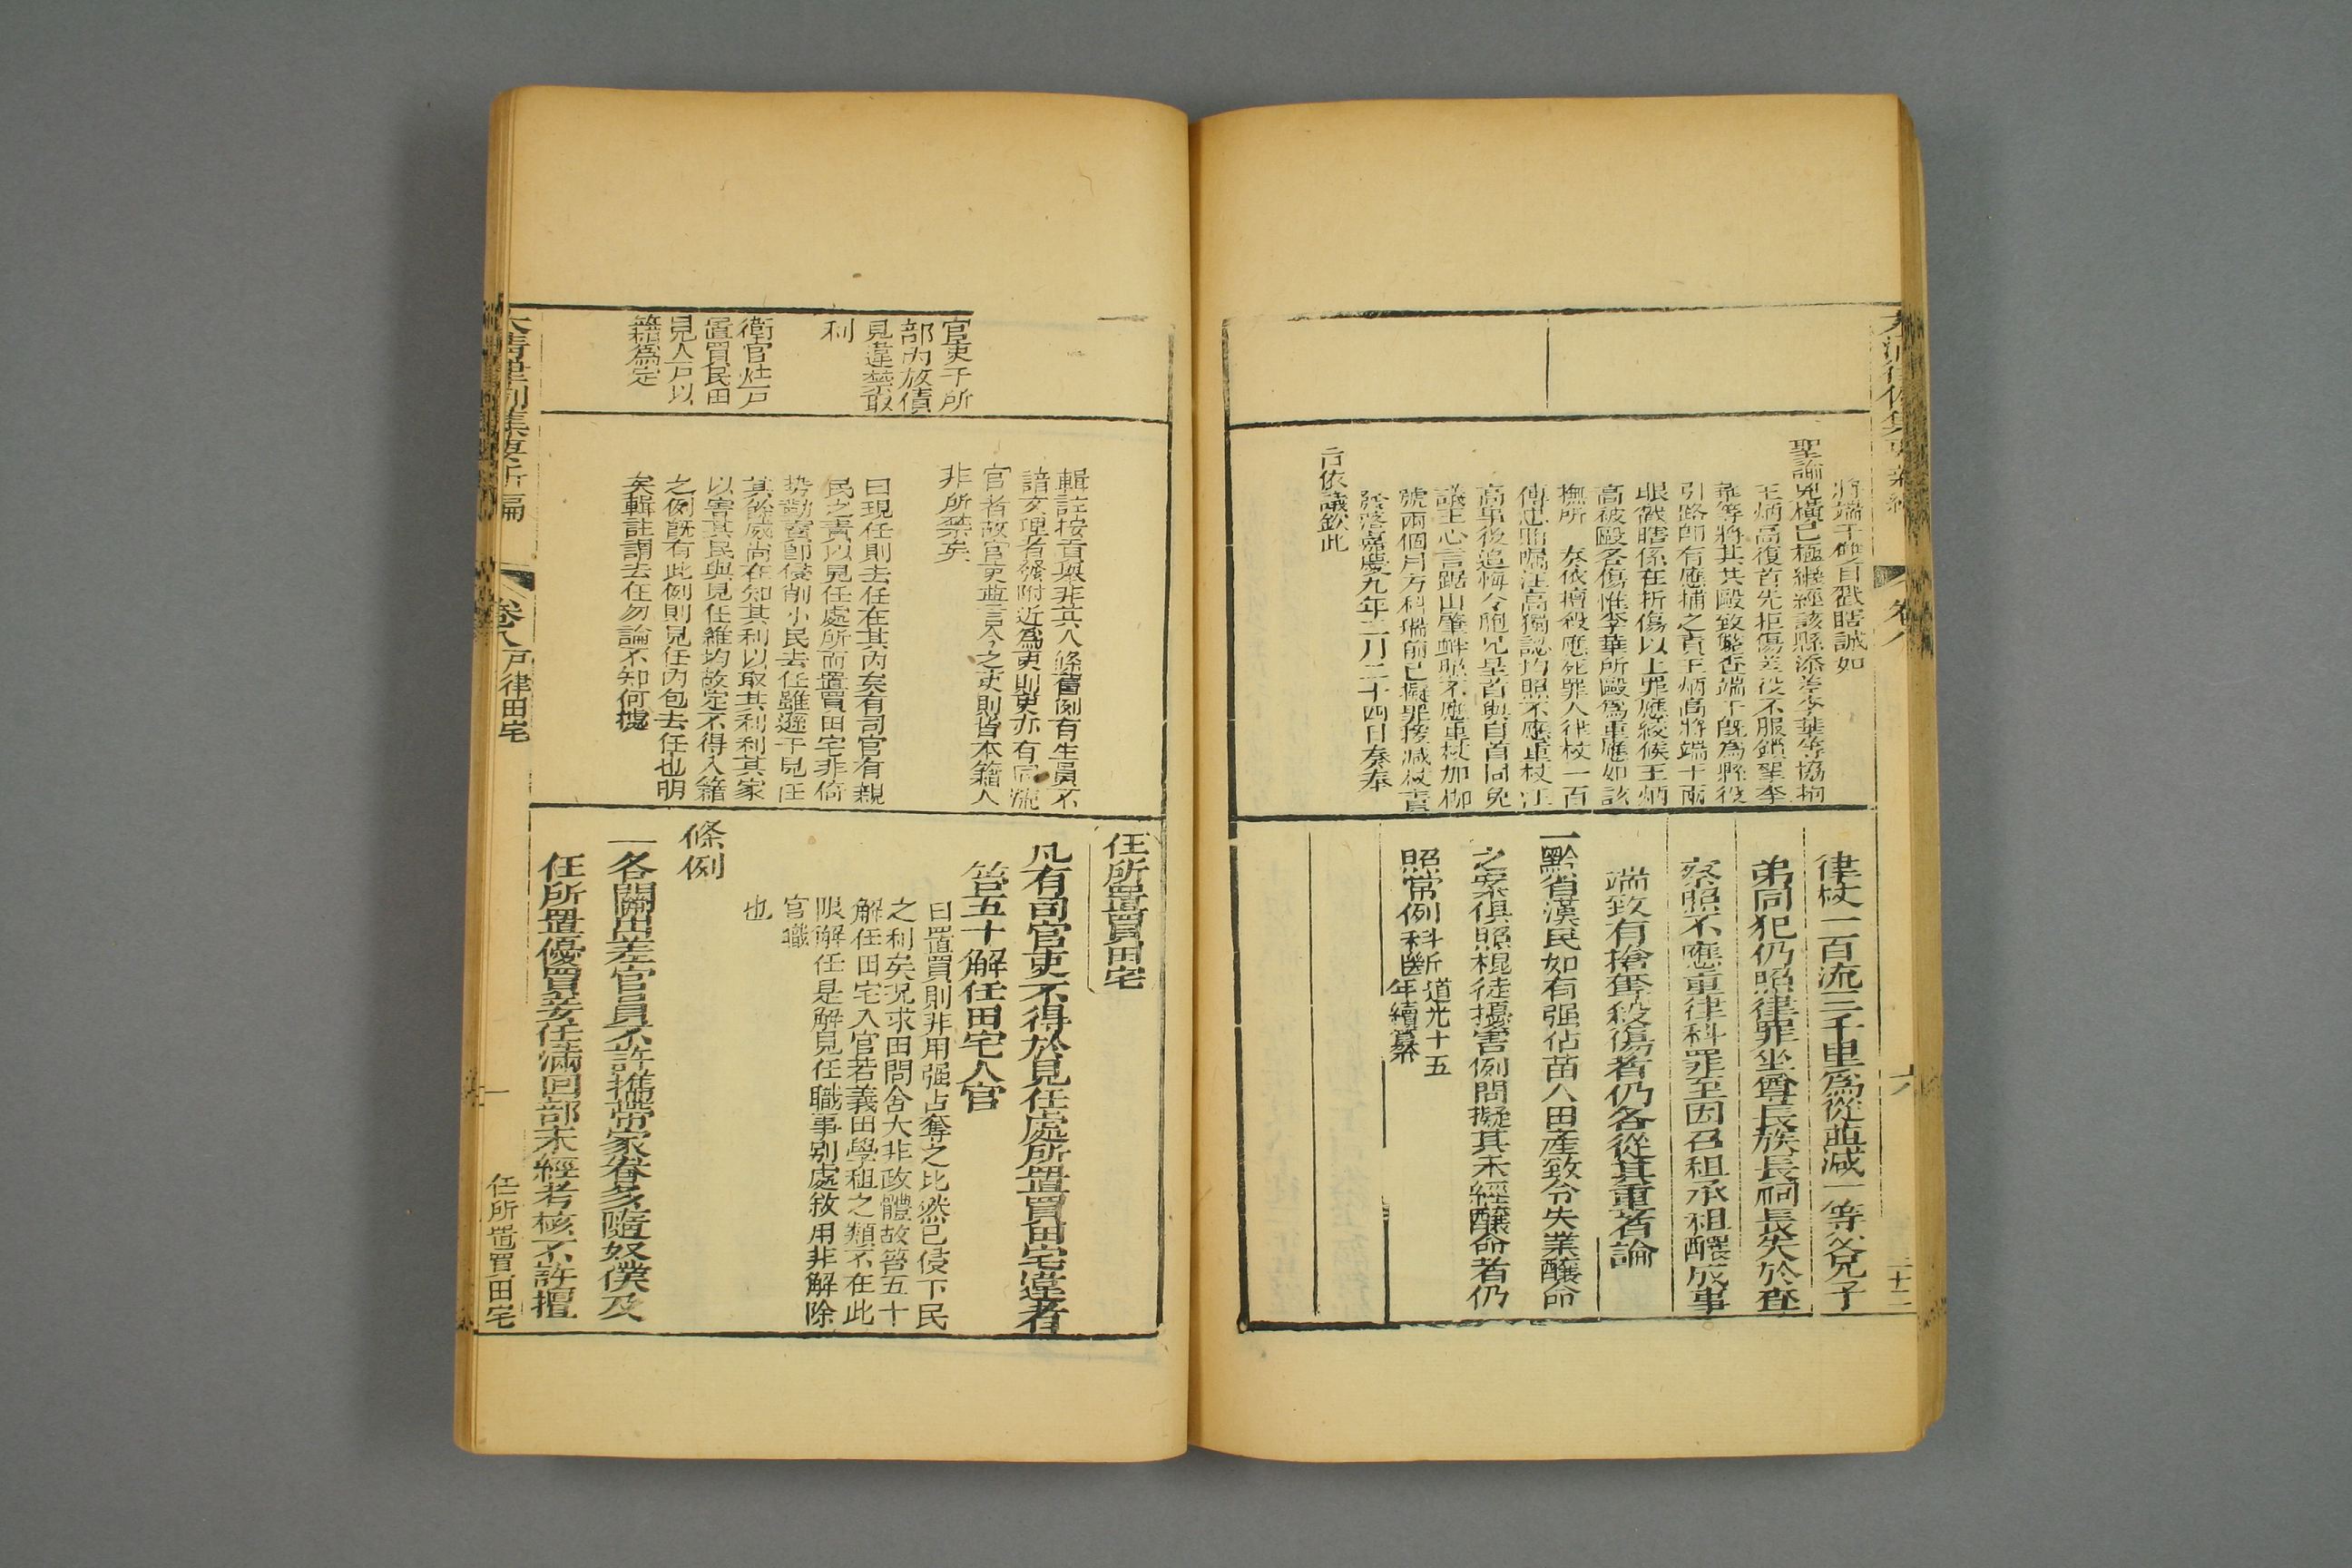 大清律例集要新編
卷八
六
三十二
將端于雙目戳瞎誠如
聖諭兇橫已極緣經該縣添差李華等協拘
王炳高復首先拒傷差役不服鎖拏李
華等將其共毆致斃查端于既為縣役
引路即有應捕之責王炳高將端于兩
眼戳瞎係在折傷以上罪應絞候王炳
高被毆各傷惟李華所毆為重應如該
撫所 奏依擅殺應死罪人律杖一百
汪高獨認均照不應重杖汪
高事後追悔令胞兄呈首與自首同免
議王心言踞山肇衅照不應重杖加枷
號兩個月方科瑞前已擬罪援減杖責
發落嘉慶九年二月二十四日奏奉
旨依議欽此
律杖一百流三千里為從並減一等父兄子
弟同犯仍照律罪坐尊長族長祠長失於查
察照不應重律科罪至因召租承租釀成事
端致有搶奪殺傷者仍各從其重者論
一黔省漢民如有强佔苗人田產致令失業釀命
之案俱照棍徒擾害例問擬其未經釀命者仍
照常例科斷道光十五
年續纂
官吏于所
部內放債
見違禁取
利
衛官灶戶
置買民田
見人戶以
籍為定
輯註按貢舉非其人條舊例有生員不
諳文理者發附近為吏則吏亦有同流
官者故官吏並言今之吏則皆本籍人
非所禁矣
曰現任則去任在其內矣有司官有親
民之責以見任處所而置買田宅非倚
勢勒賣即侵削小民去任雖遜于見任
其餘威尚在知其利以取其利利其家
以害其民與見任維均故定不得入籍
之例既有此例則見任內包去任也明
矣輯註謂去任勿論不知何據
任所置買田宅
凡有司官吏不得於見任處所置買田宅違者
笞五十解任田宅入官
曰置買則非用强占奪之比然已侵下民
之利矣况求田問舍大非政體故笞五十
解任田宅入官若義田學租之類不在此
限解任是解見任職事别處敘用非解除
官職
也
條例
一各關出差官員不許攜帶家眷多隨奴僕及
任所置優買妾任滿回部未經考核不許擅
大清律例集要新編
卷八戶律田宅
任所置買田宅